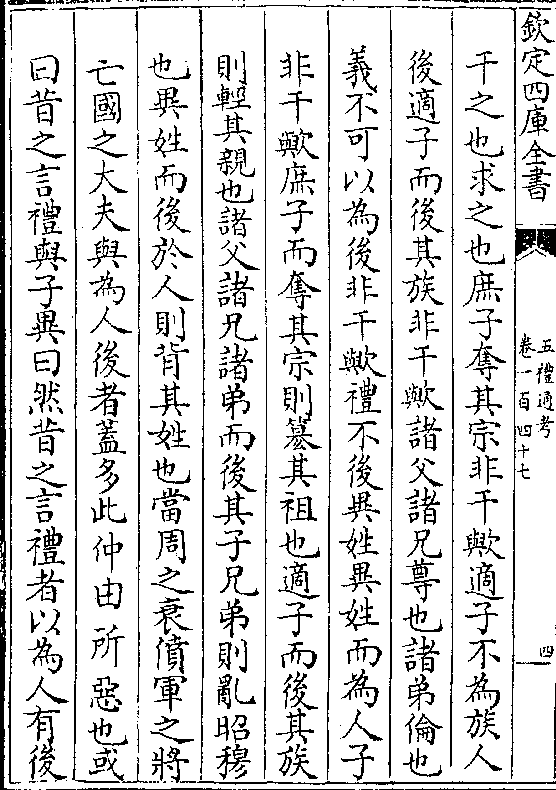 欽定四庫全書
五禮通考
卷一百四十七
四
干之也求之也庶子奪其宗非干歟適子不為族人
後適子而後其族非干歟諸父諸兄尊也諸弟倫也
義不可以為後非干歟禮不後異姓異姓而為人子
非干歟庶子而奪其宗則簒其祖也適子而後其族
則輕其親也諸父諸兄諸弟而後其子兄弟則亂昭穆
也異姓而後於人則背其姓也當周之衰僨軍之將
亡國之大夫與為人後者蓋多此仲由所惡也或
曰昔之言禮與子異曰然昔之言禮者以為人有後